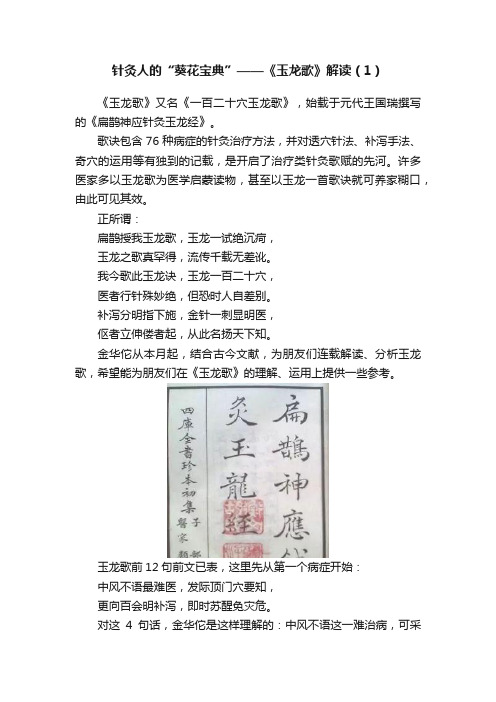 针灸人的“葵花宝典”——《玉龙歌》解读（1）
《玉龙歌》又名《一百二十六穴玉龙歌》，始载于元代王国瑞撰写
的《扁鹊神应针灸玉龙经》。
歌诀包含 76 种病症的针灸治疗方法，并对透穴针法、补泻手法、
奇穴的运用等有独到的记载，是开启了治疗类针灸歌赋的先河。许多
医家多以玉龙歌为医学启蒙读物，甚至以玉龙一首歌诀就可养家糊口，
由此可见其效。
正所谓：
扁鹊授我玉龙歌，玉龙一试绝沉疴，
玉龙之歌真罕得，流传千载无差讹。
我今歌此玉龙诀，玉龙一百二十穴，
医者行针殊妙绝，但恐时人自差别。
补泻分明指下施，金针一刺显明医，
伛者立伸偻者起，从此名扬天下知。
金华佗从本月起，结合古今文献，为朋友们连载解读、分析玉龙
歌，希望能为朋友们在《玉龙歌》的理解、运用上提供一些参考。
扁鵲神應
灸玉龍經
四庫全書珍本初集
子部
醫家類
玉龙歌前 12 句前文已表，这里先从第一个病症开始：
中风不语最难医，发际顶门穴要知，
更向百会明补泻，即时苏醒免灾危。
对这 4 句话，金华佗是这样理解的：中风不语这一难治病，可采